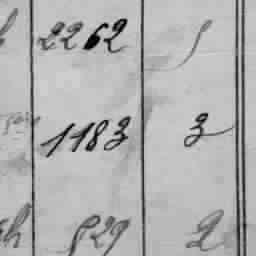 2262 1
1183 3
829 2